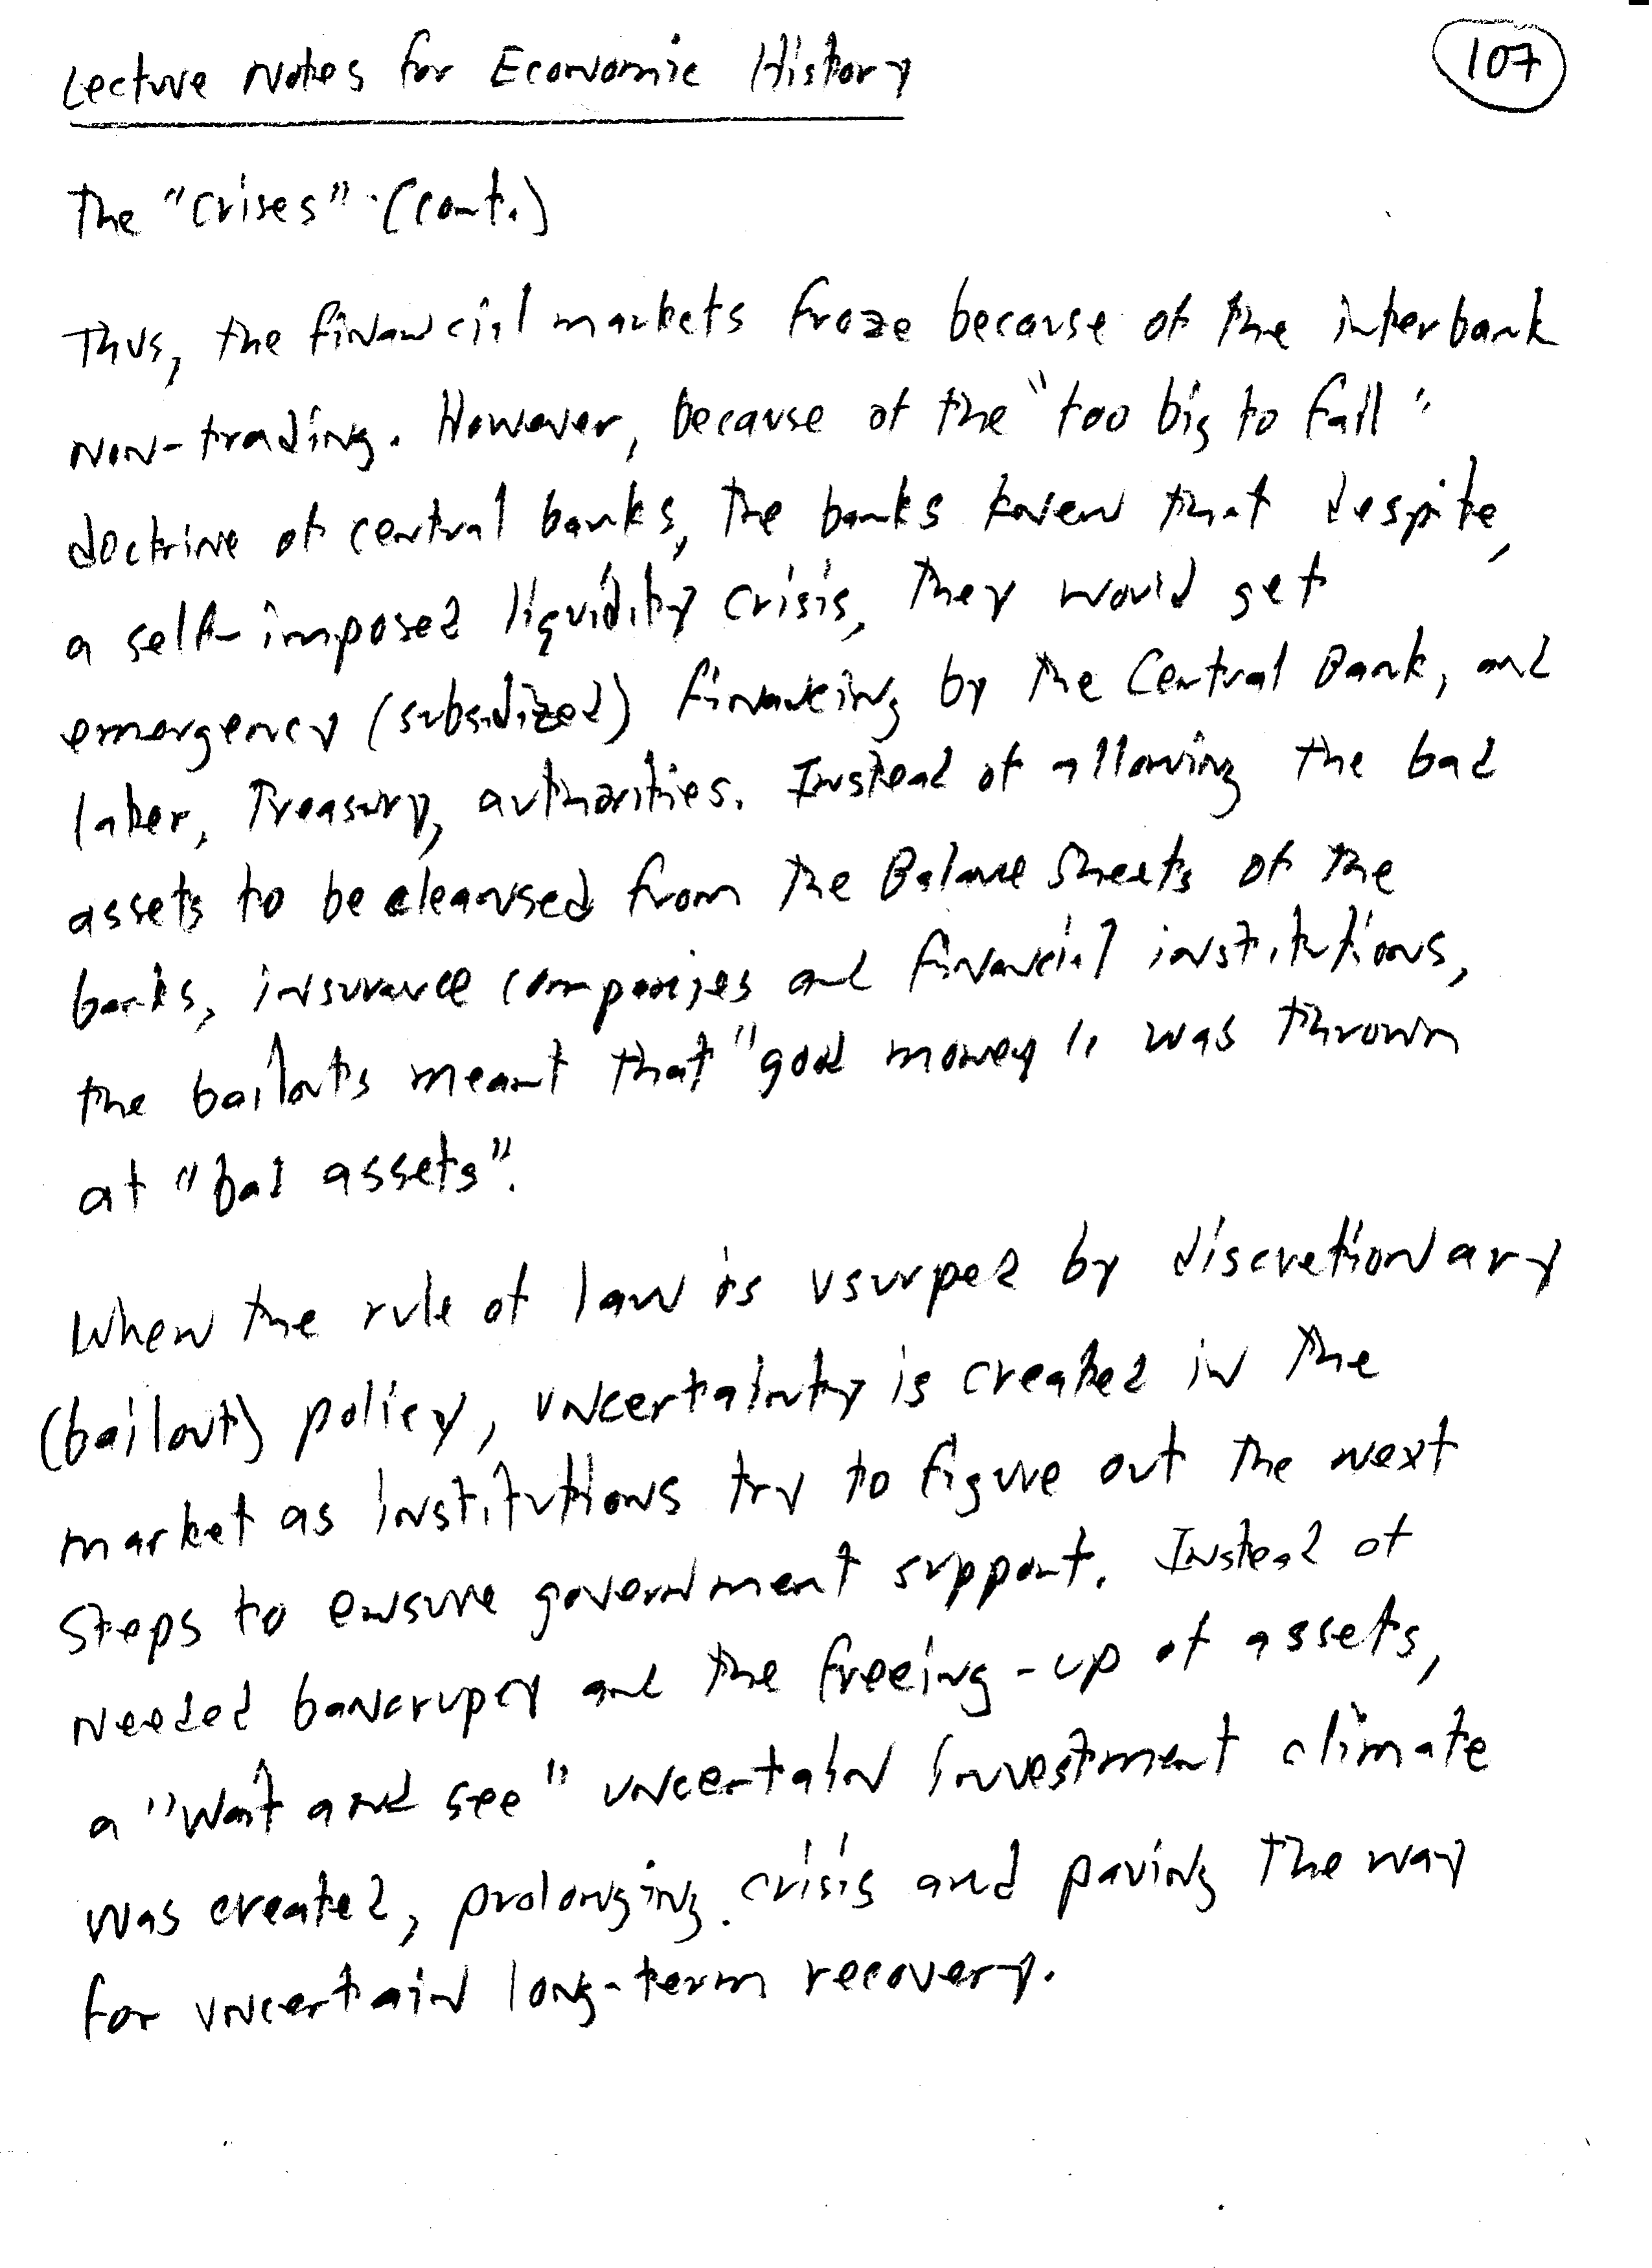 Lecture Notes for Economic History
107
The "Crises" (cont.)
Thus, the financial markets froze because of the interbank
non-trading. However, because of the "too big to fail"
doctrine of central banks, the banks knew that despite,
a self-imposed liquidity crisis, they would get
emergency (subsidized) financing by the Central Bank, and
later, Treasury, authorities. Instead of allowing the bad
assets to be cleansed from the Balance Sheets of the
banks, insurance companies and financial institutions,
the bailouts meant that "good money" was thrown
at "bad assets".
When the rule of law is usurped by discretionary
(bailout) policy, uncertainty is created in the
market as institutions try to figure out the next
steps to ensure government support. Instead of
needed bancrupcy and the freeing-up of assets,
a "wait and see" uncertain investment climate
was created, prolonging crisis and paving the way
for uncertain long-term recovery.